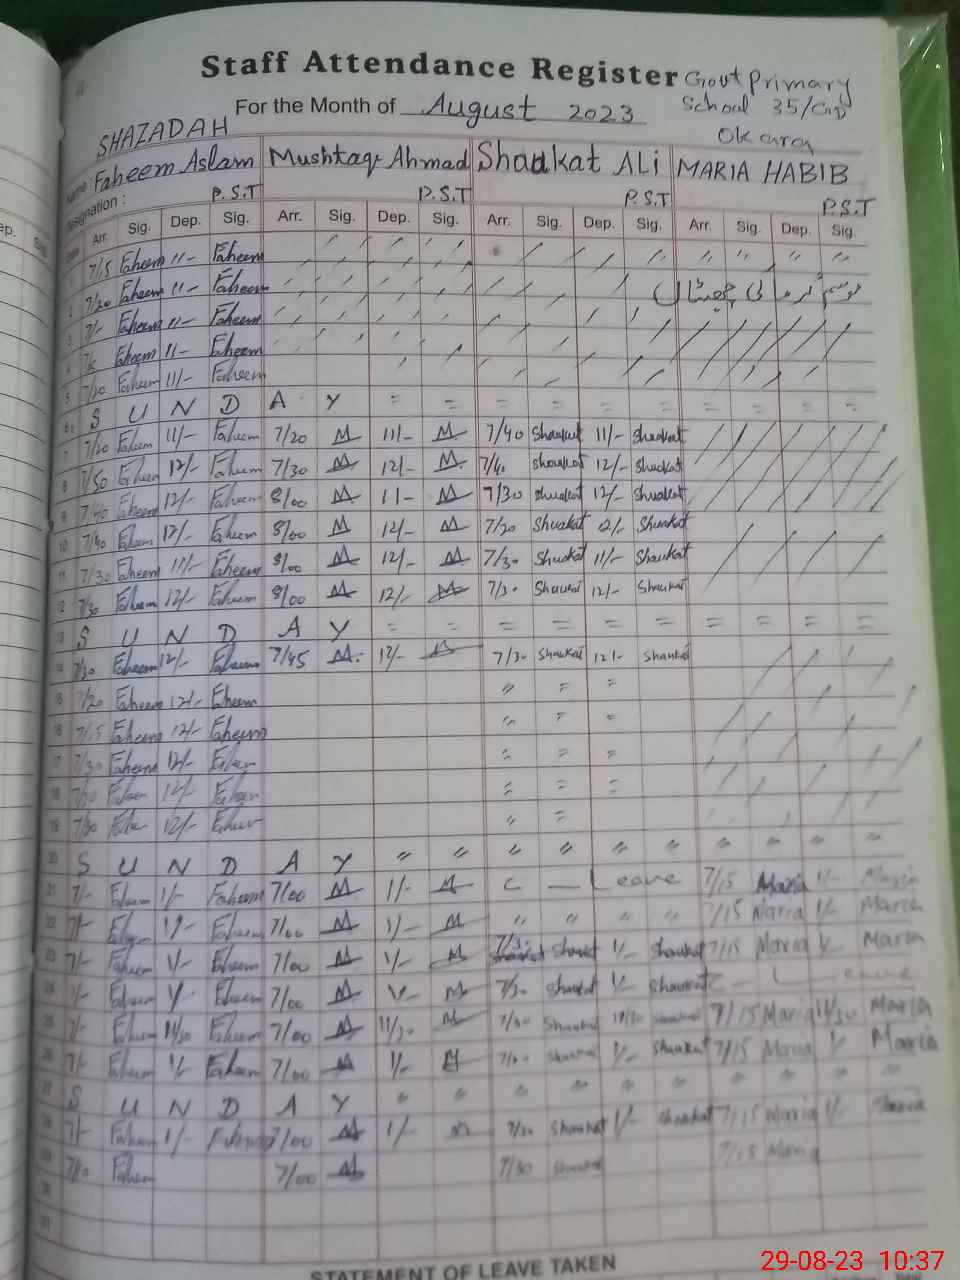 Staff Attendance Register Govt Primary
For the Month of August 2023 School 35/GD
Okara
SHAZADAH
Name: Faheem Aslam Mushtaq Ahmad Shaukat ALi MARIA HABIB
Designation: P.S.T P.S.T P.S.T P.S.T
Arr. Sig. Dep. Sig. Arr. Sig. Dep. Sig. Arr. Sig. Dep. Sig. Arr. Sig. Dep. Sig.
7/15 Faheem 11- Faheem " " " "
2 7/20 Faheem 11- Faheem
3 7/- Faheem 11/- Faheem
4 Faheem 11- Faheem
5 7/20 Faheem 11/- Faheem
6 S U N D A Y = = = = = = = = = =
7 7/20 Faheem 11/- Faheem 7/20 M 11/- M 7/40 Shaukat 11/- Shaukat
8 7/50 Faheem 12/- Faheem 7/30 M 12/- M 7/40 Shaukat 12/- Shaukat
9 7/40 Faheem 12/- Faheem 8/00 M 11- M 7/30 Shaukat 12/- Shaukat
10 7/40 Faheem 12/- Faheem 8/00 M 12/- M 7/20 Shaukat 12/- Shaukat
11 7/30 Faheem 11/- Faheem 8/00 M 12/- M 7/30 Shaukat 11/- Shaukat
12 7/30 Faheem 12/- Faheem 8/00 M 12/- M 7/30 Shaukat 12/- Shaukat
13 S U N D A Y = = = = = = = = = =
14 7/30 Faheem 12/- Faheem 7/45 M 12/- M 7/30 Shaukat 12/- Shaukat
15 7/20 Faheem 12/- Faheem " = =
16 7/15 Faheem 12/- Faheem " = =
17 7/30 Faheem 12/- Faheem = = =
18 7/30 Faheem 12/- Faheem = = =
19 7/30 Faheem 12/- Faheem " =
20 S U N D A Y " " " " " " " " " "
21 7/- Faheem 1/- Faheem 7/00 M 1/- M C — Leave 7/15 Maria 1/- Maria
22 7/- Faheem 1/- Faheem 7/00 M 1/- M " " " " 7/15 Maria 1/- Maria
23 7/- Faheem 1/- Faheem 7/00 M 1/- M 7/30 Shaukat 1/- Shaukat 7/15 Maria 1/- Maria
24 7/- Faheem 1/- Faheem 7/00 M 1/- M 7/30 Shaukat 1/- Shaukat C — Leave
25 7/- Faheem 11/30 Faheem 7/00 M 11/30 M 7/30 Shaukat 11/30 Shaukat 7/15 Maria 11/30 Maria
26 7/- Faheem 1/- Faheem 7/00 M 1/- M 7/30 Shaukat 1/- Shaukat 7/15 Maria 1/- Maria
27 S U N D A Y " " " " " " " " " "
28 7/- Faheem 1/- Faheem 7/00 M 1/- M 7/30 Shaukat 1/- Shaukat 7/15 Maria 1/- Maria
29 7/10 Faheem 7/00 M 7/30 Shaukat 7/15 Maria
30
31
STATEMENT OF LEAVE TAKEN
29-08-23 10:37